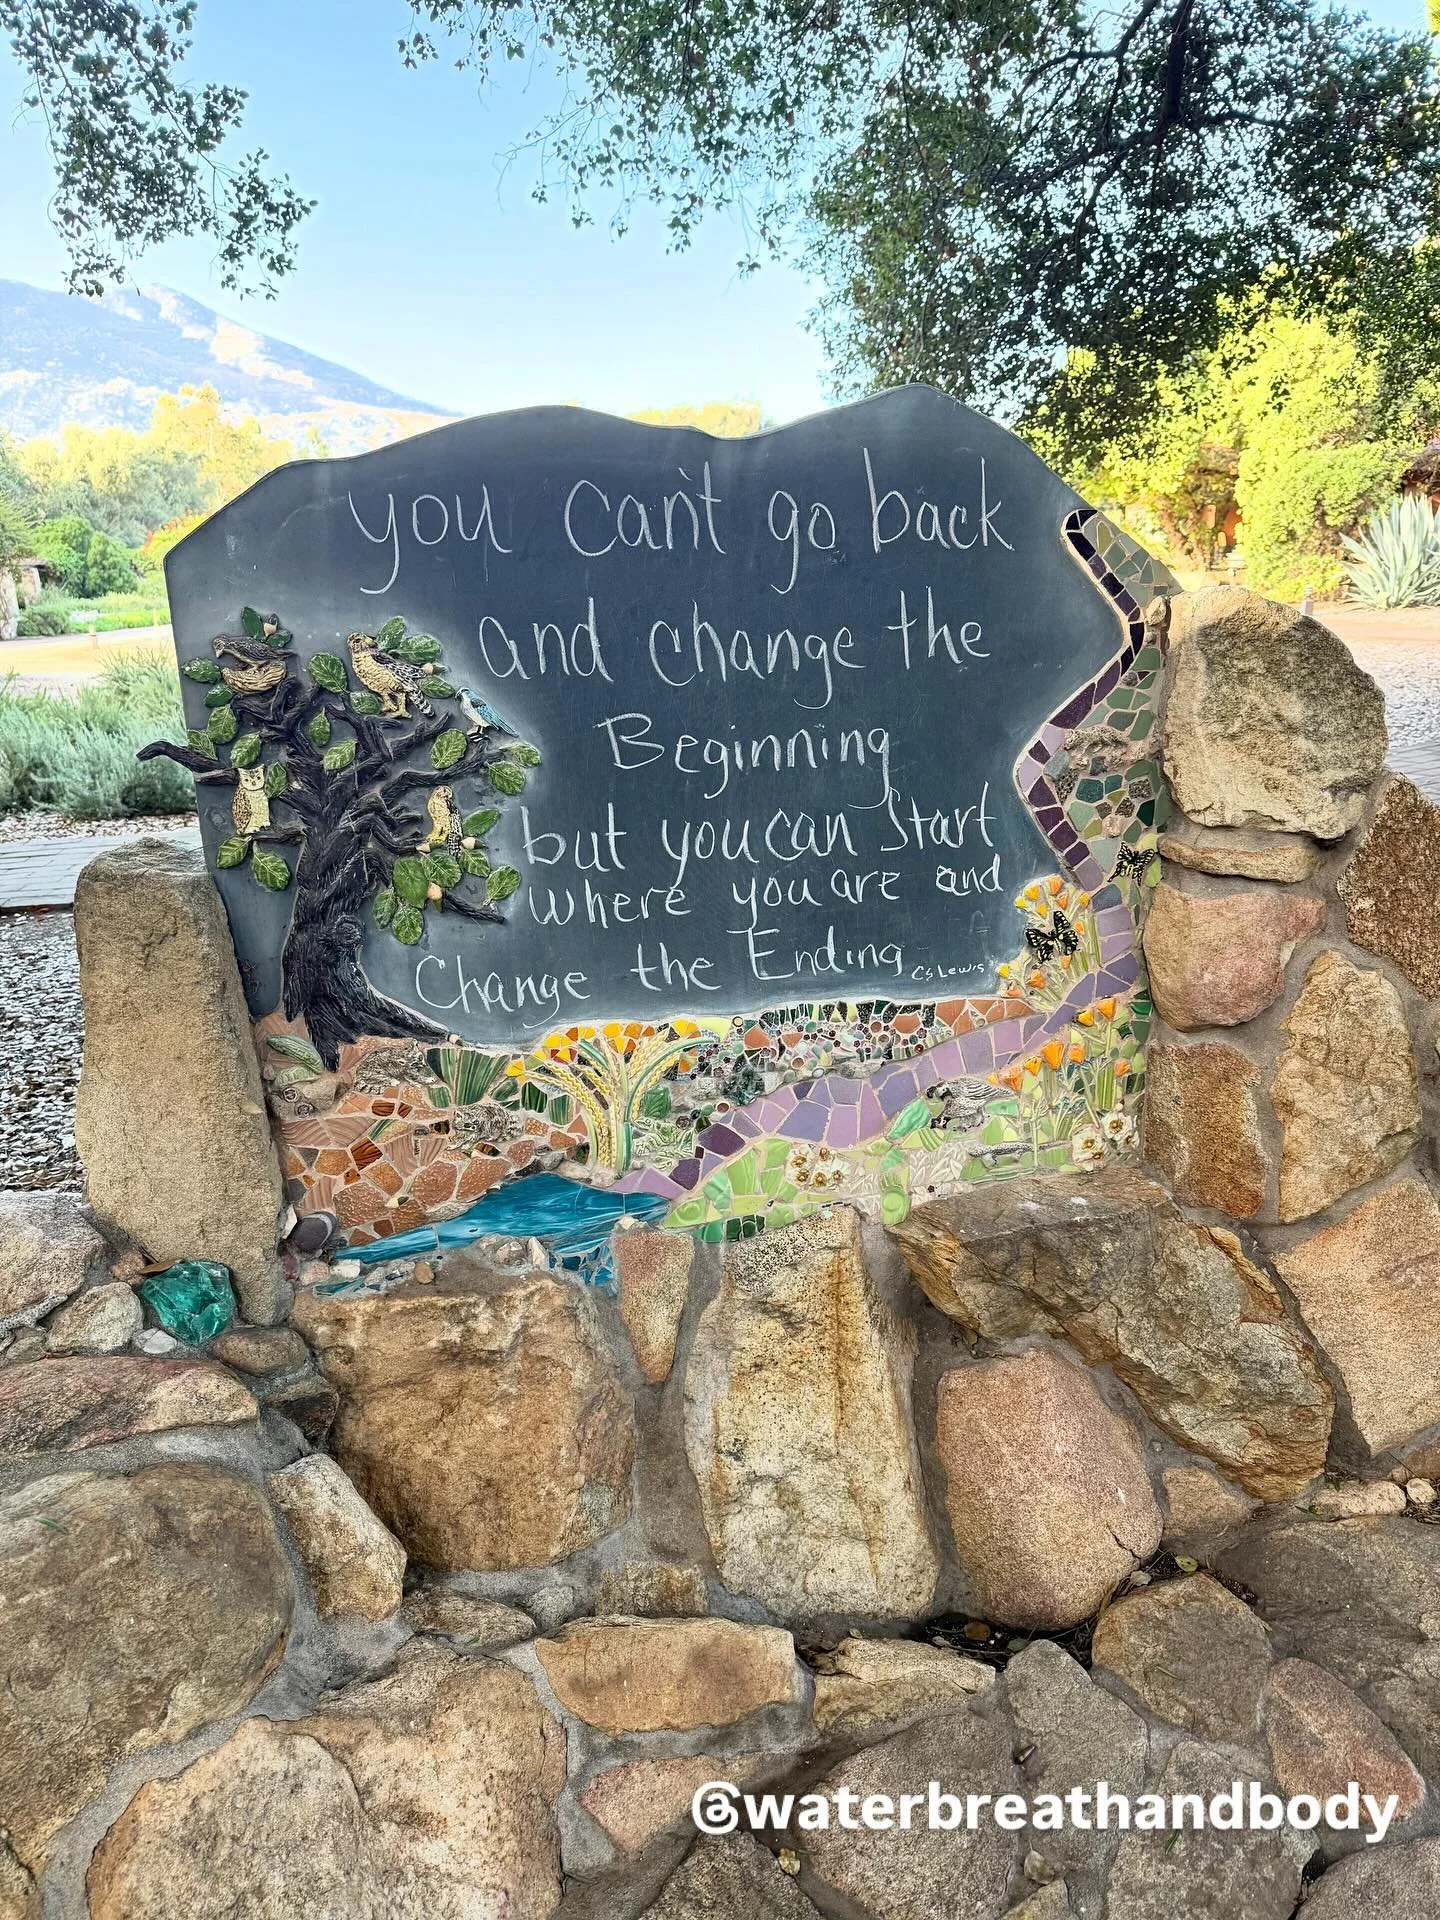 you can't go back
and change the
Beginning
but you can Start
where you are and
Change the Ending
CS Lewis
@waterbreathandbody